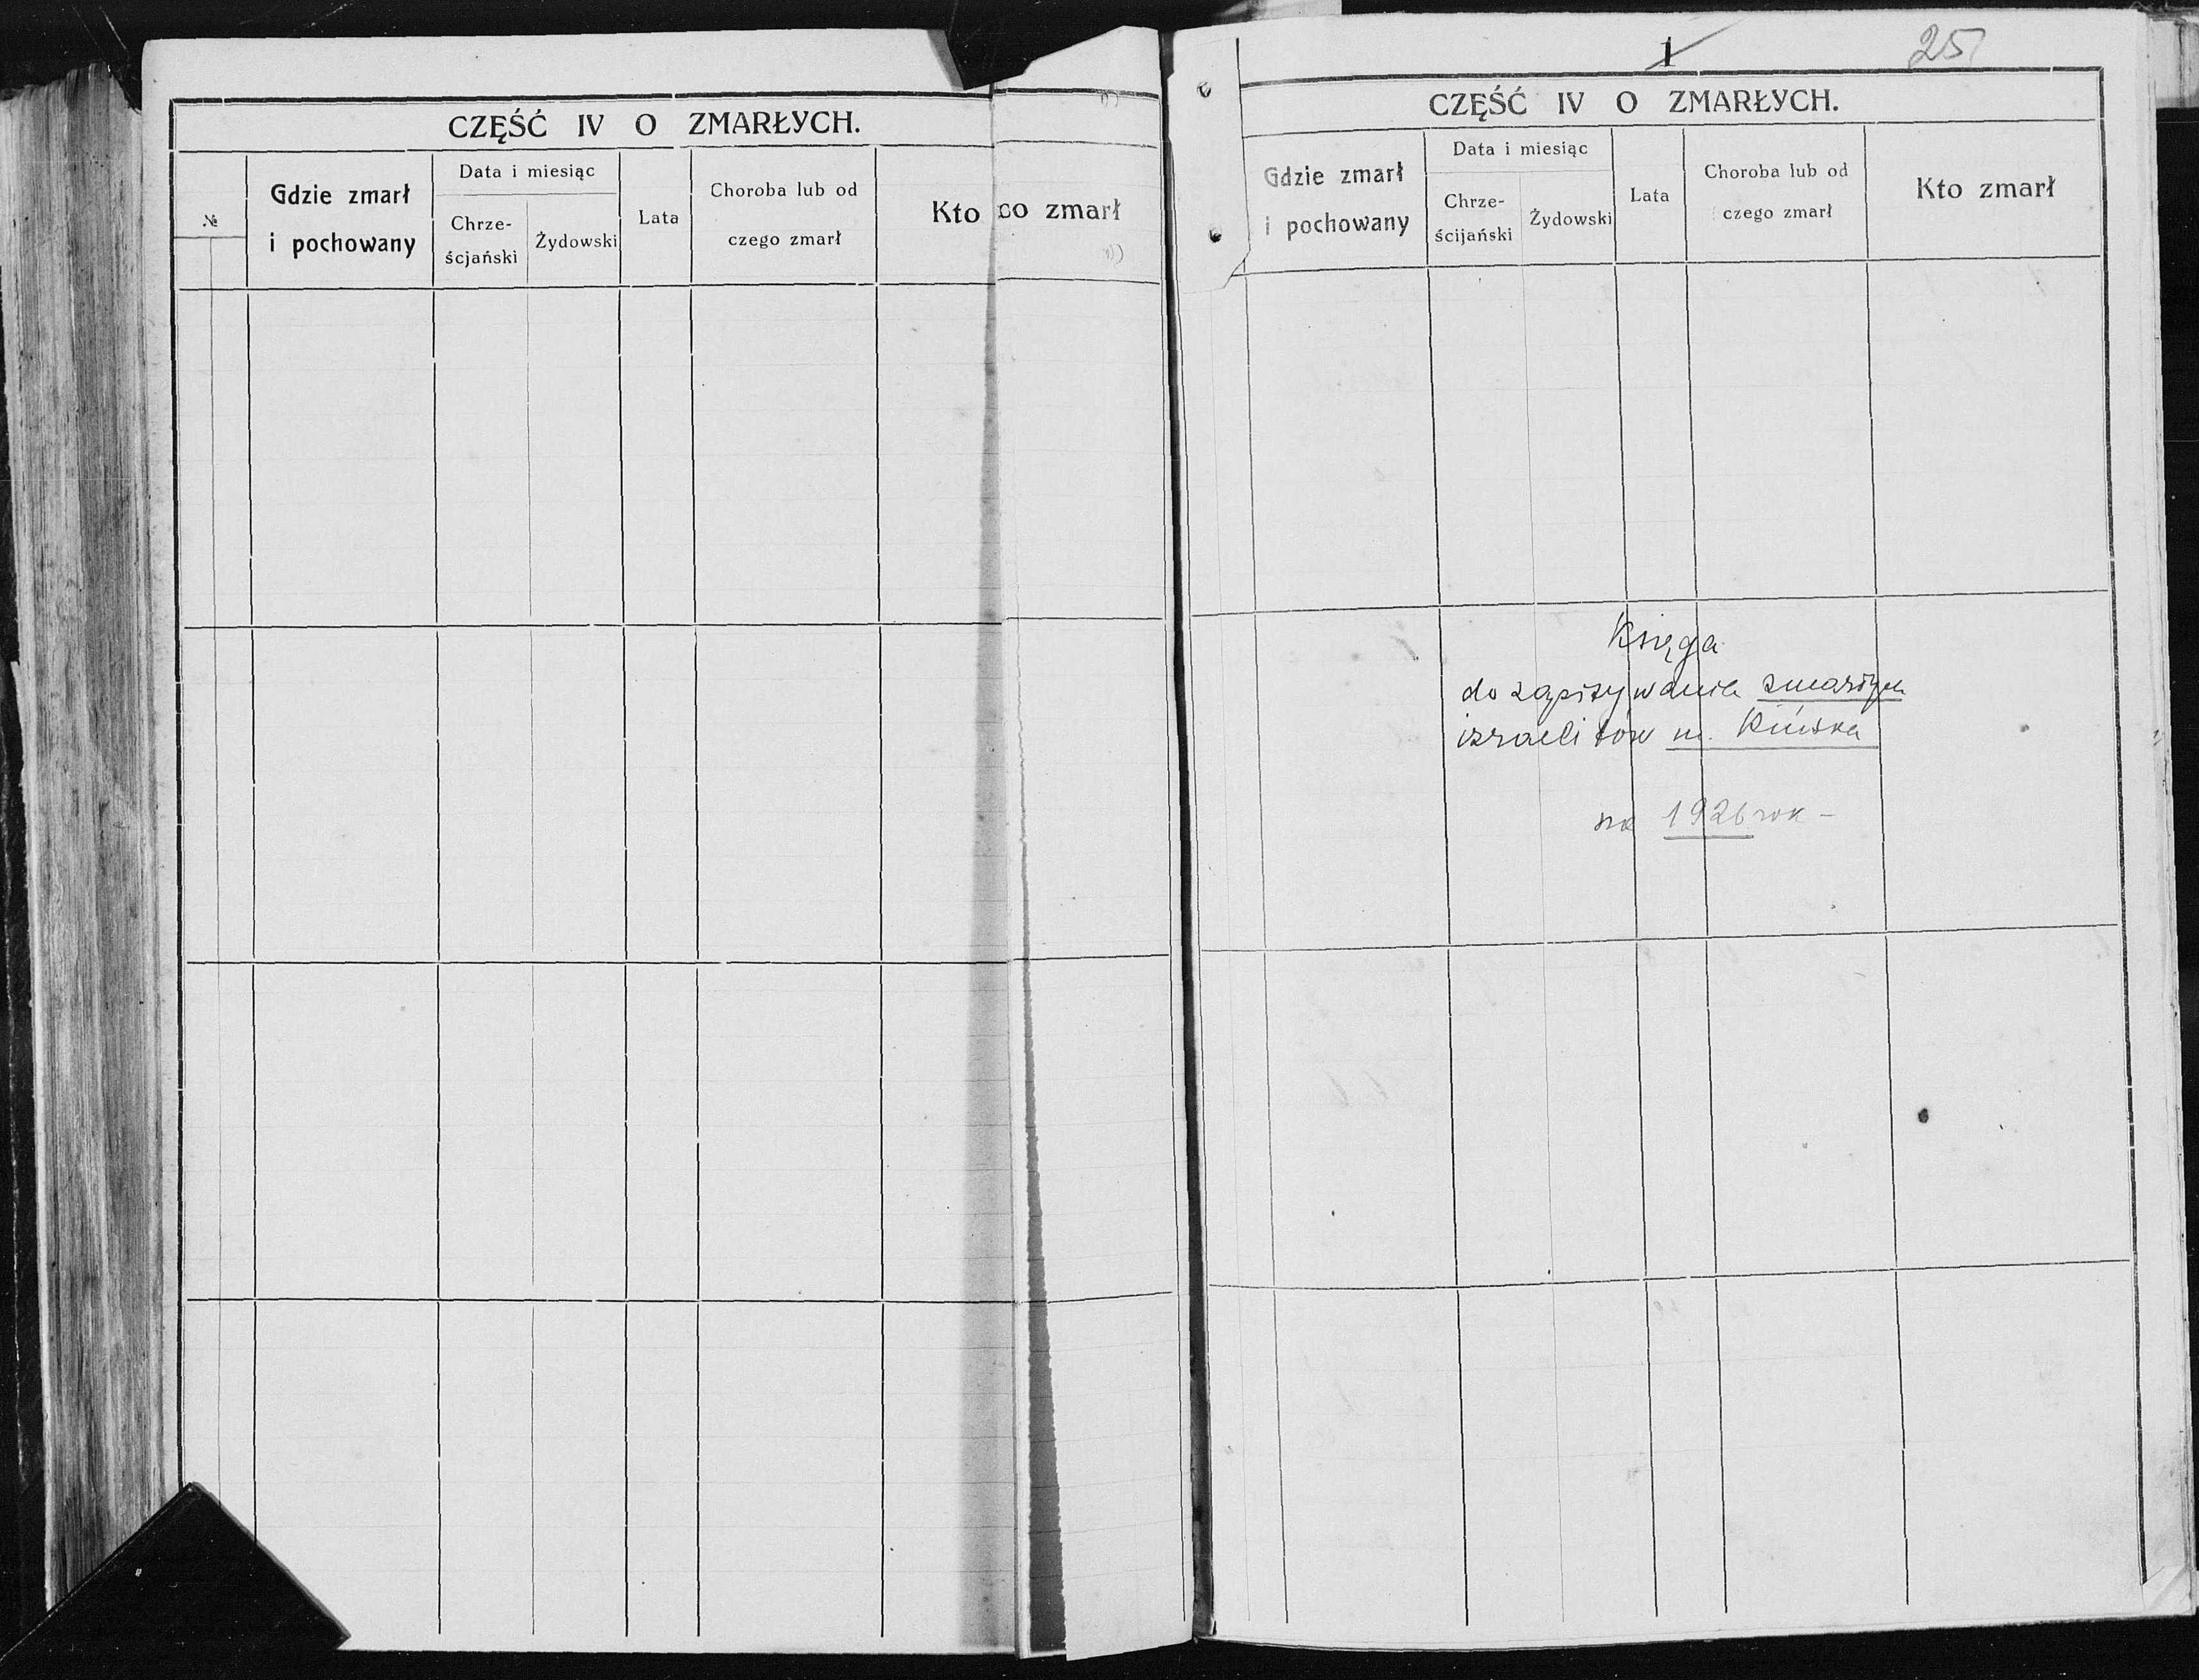 CZĘŚĆ IV O ZMARŁYCH.
№
Gdzie zmarł
i pochowany
Data i miesiąc
Chrze-
ścjański
Żydowski
Lata
Choroba lub od
czego zmarł
Kto
co zmarł
1
25
CZĘŚĆ IV O ZMARŁYCH.
Gdzie zmarł
i pochowany
Data i miesiąc
Chrze-
ścijański
Żydowski
Lata
Choroba lub od
czego zmarł
Kto zmarł
Księga
do zapisywania zmarłych
izraelitów m. Pińska
na 1926 rok –